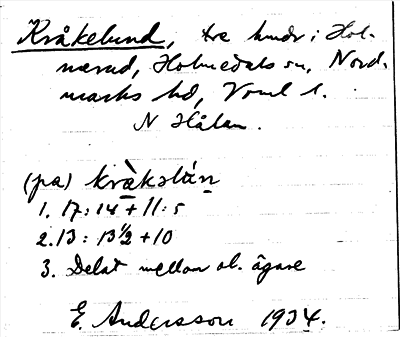 Kråkelund, tre hmdr i Hol-
nærud, Holmedals sn, Nord-
marks hd, Vrml l.
N Hålan.
(pa) kràkslún
1. 17: 14 + 11:5
2. 13: 13 1/2 + 10
3. Delat mellan ol. ägare
E. Andersson 1934.